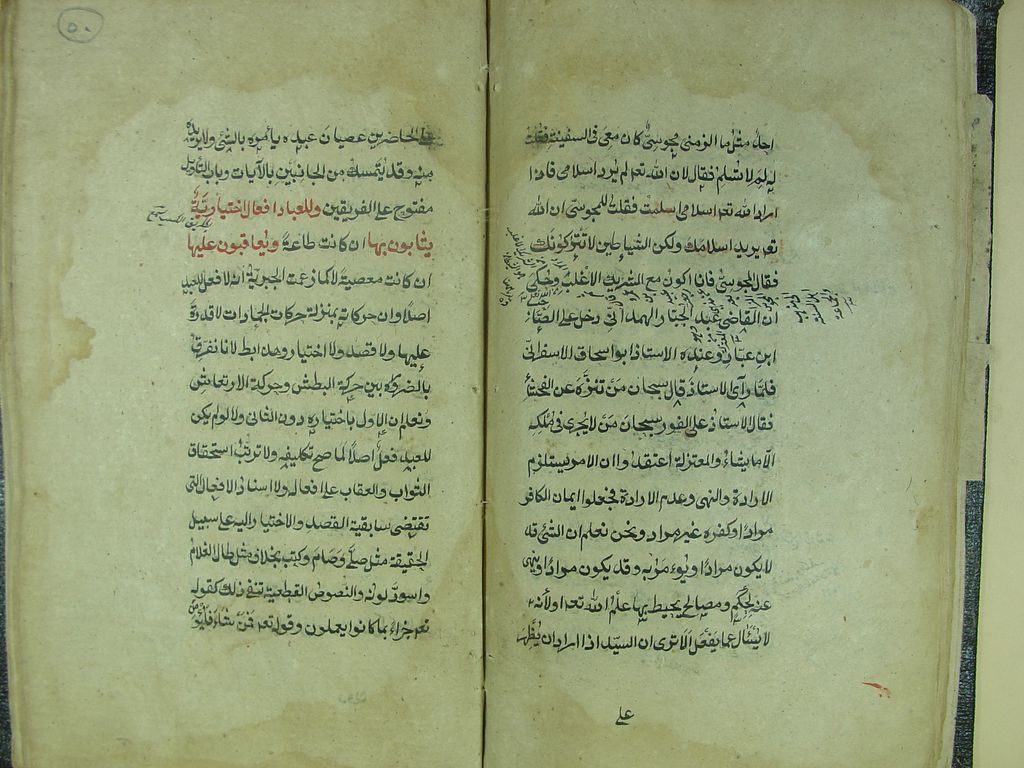 احد مثل ما الزمنى مجوسىّ كان معى فى السفينة فقلت
له لم لا تسلم فقال لان الله تعه لم يرد اسلامى فاذا
اراد الله تعه اسلامى اسلمت فقلت للمجوسى ان الله
تعه يريد اسلامك ولكن الشياطين لا يتركونك
فقال المجوسى فانا اكون مع الشريك الاغلب وحكى
ان القاضى عبد الجبار الهمدانى دخل على الصّاحب
ابن عباد وعنده الاستاذ ابو اسحاق الاسفرائنى
فلمّا رأى الاستاذ قال سبحان من تنزّه عن الفحشاء
فقال الاستاذ على الفور سبحان من لا يجرى فى ملكه
الّا ما يشاء والمعتزلة اعتقدوا ان الامر يستلزم
الارادة والنهى وعدم الارادة فجعلوا ايمان الكافر
مرادًا وكفره غير مراد ونحن نعلم ان الشئ قد
لا يكون مرادًا ويؤمر به وقد يكون مرادًا وينهى
عنه لحكم ومصالح يحيط بها علم الله تعه او لانه
لا يسئال عما يفعل الا ترى ان السيّد اذا اراد ان يظهر
على
٥٠
على الحاضرين عصيان عبده يأمره بالشئ ولا يريده
منه وقد يتمسك من الجانبين بالآيات وباب التأويل
مفتوح على الفريقين وللعباد افعال اختيارية
يثابون بها ان كانت طاعة ويعاقبون عليها
ان كانت معصية لا كما زعمت الجبرية انه لا فعل للعبد
اصلًا وان حركاته بمنزلة حركات الجمادات لا قدرة
عليها ولا قصد ولا اختيار وهذا بط لانا نفرق
بالضرورة بين حركة البطش وحركة الارتعاش
ونعلم ان الاول باختياره دون الثانى ولانه لو لم يكن
للعبد فعل اصلًا لما صح تكليفه ولا ترتب استحقاق
الثواب والعقاب على افعاله ولا اسناد الافعال التى
تقتضى سابقية القصد والاختيار اليه على سبيل
الحقيقة مثل صلّى وصام وكتب بخلاف مثل طال الغلام
واسودّ لونه والنصوص القطعية تنفى ذلك كقوله
تعه جزاء بما كانوا يعملون وقوله تعه فمن شاء فليؤمن